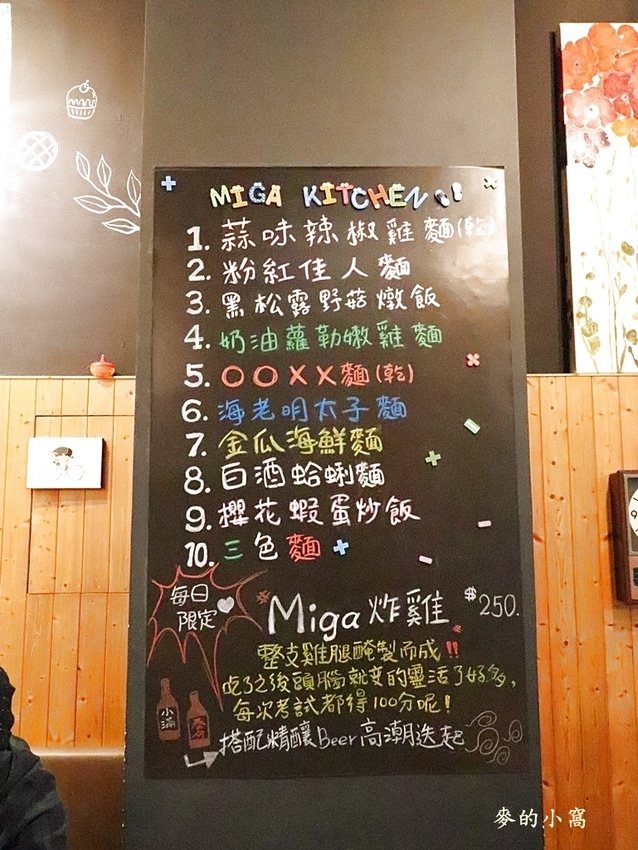 MIGA KITCHEN
1. 蒜味辣椒雞麵(乾)
2. 粉紅佳人麵
3. 黑松露野菇燉飯
4. 奶油蘿勒嫩雞麵
5. OOXX麵(乾)
6. 海老明太子麵
7. 金瓜海鮮麵
8. 白酒蛤蜊麵
9. 櫻花蝦蛋炒飯
10. 三色麵
每日
限定
Miga炸雞 $250.
整支雞腿醃製而成!!
吃了之後頭腦就變的靈活了好多,
每次考試都得100分呢!
小滿
春分
搭配精釀Beer高潮迭起
麥的小窩